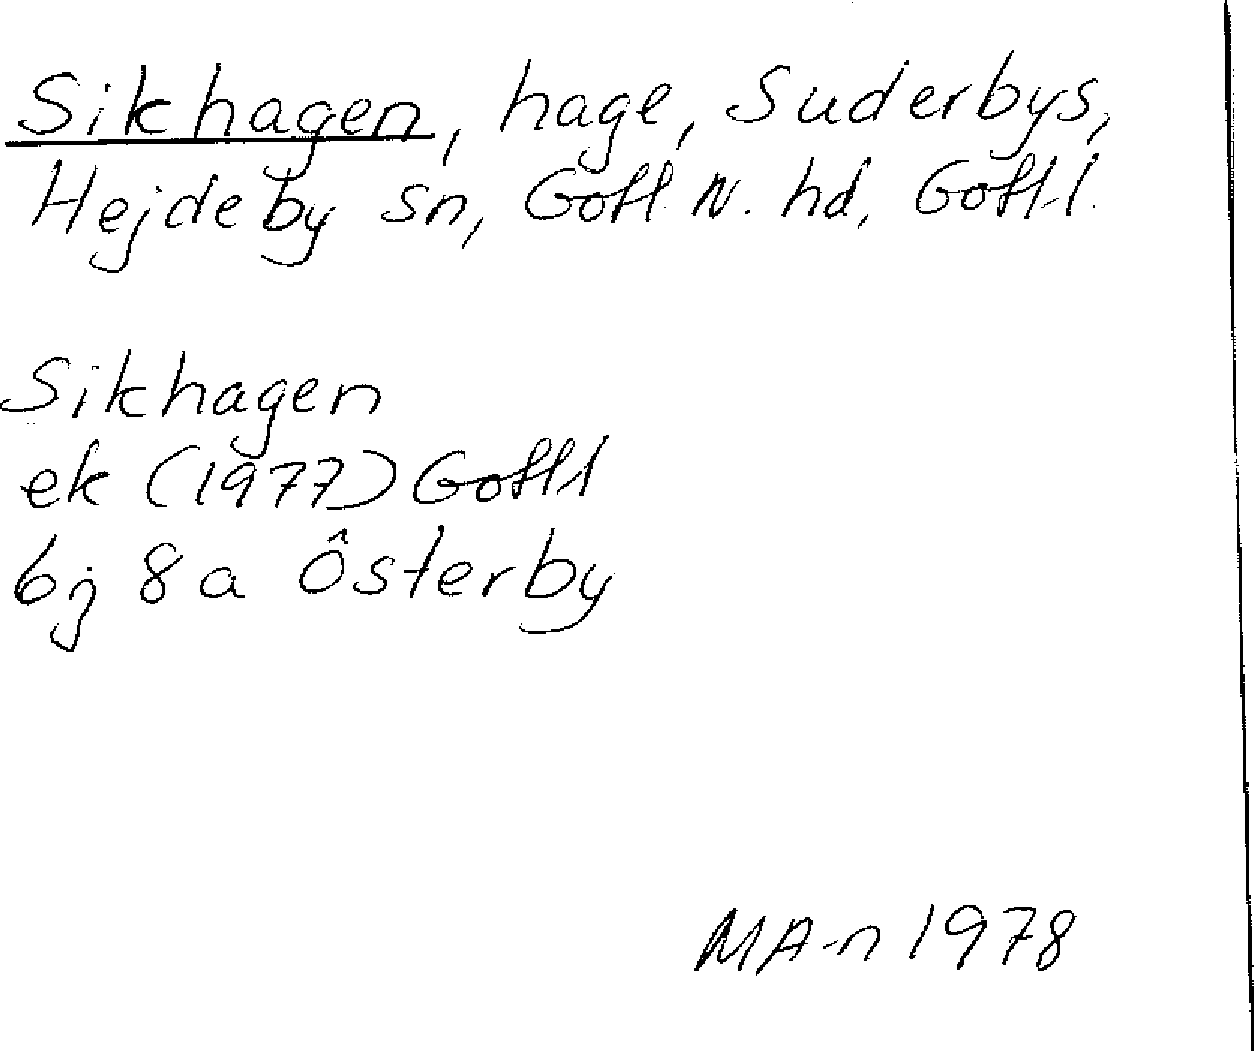 Sikhagen, hage, Suderbys,
Hejdeby sn, Gotl. N. hd, Gottl.
Sikhagen
ek (1977) Gottl
6j 8a Östерby
MA-n 1978